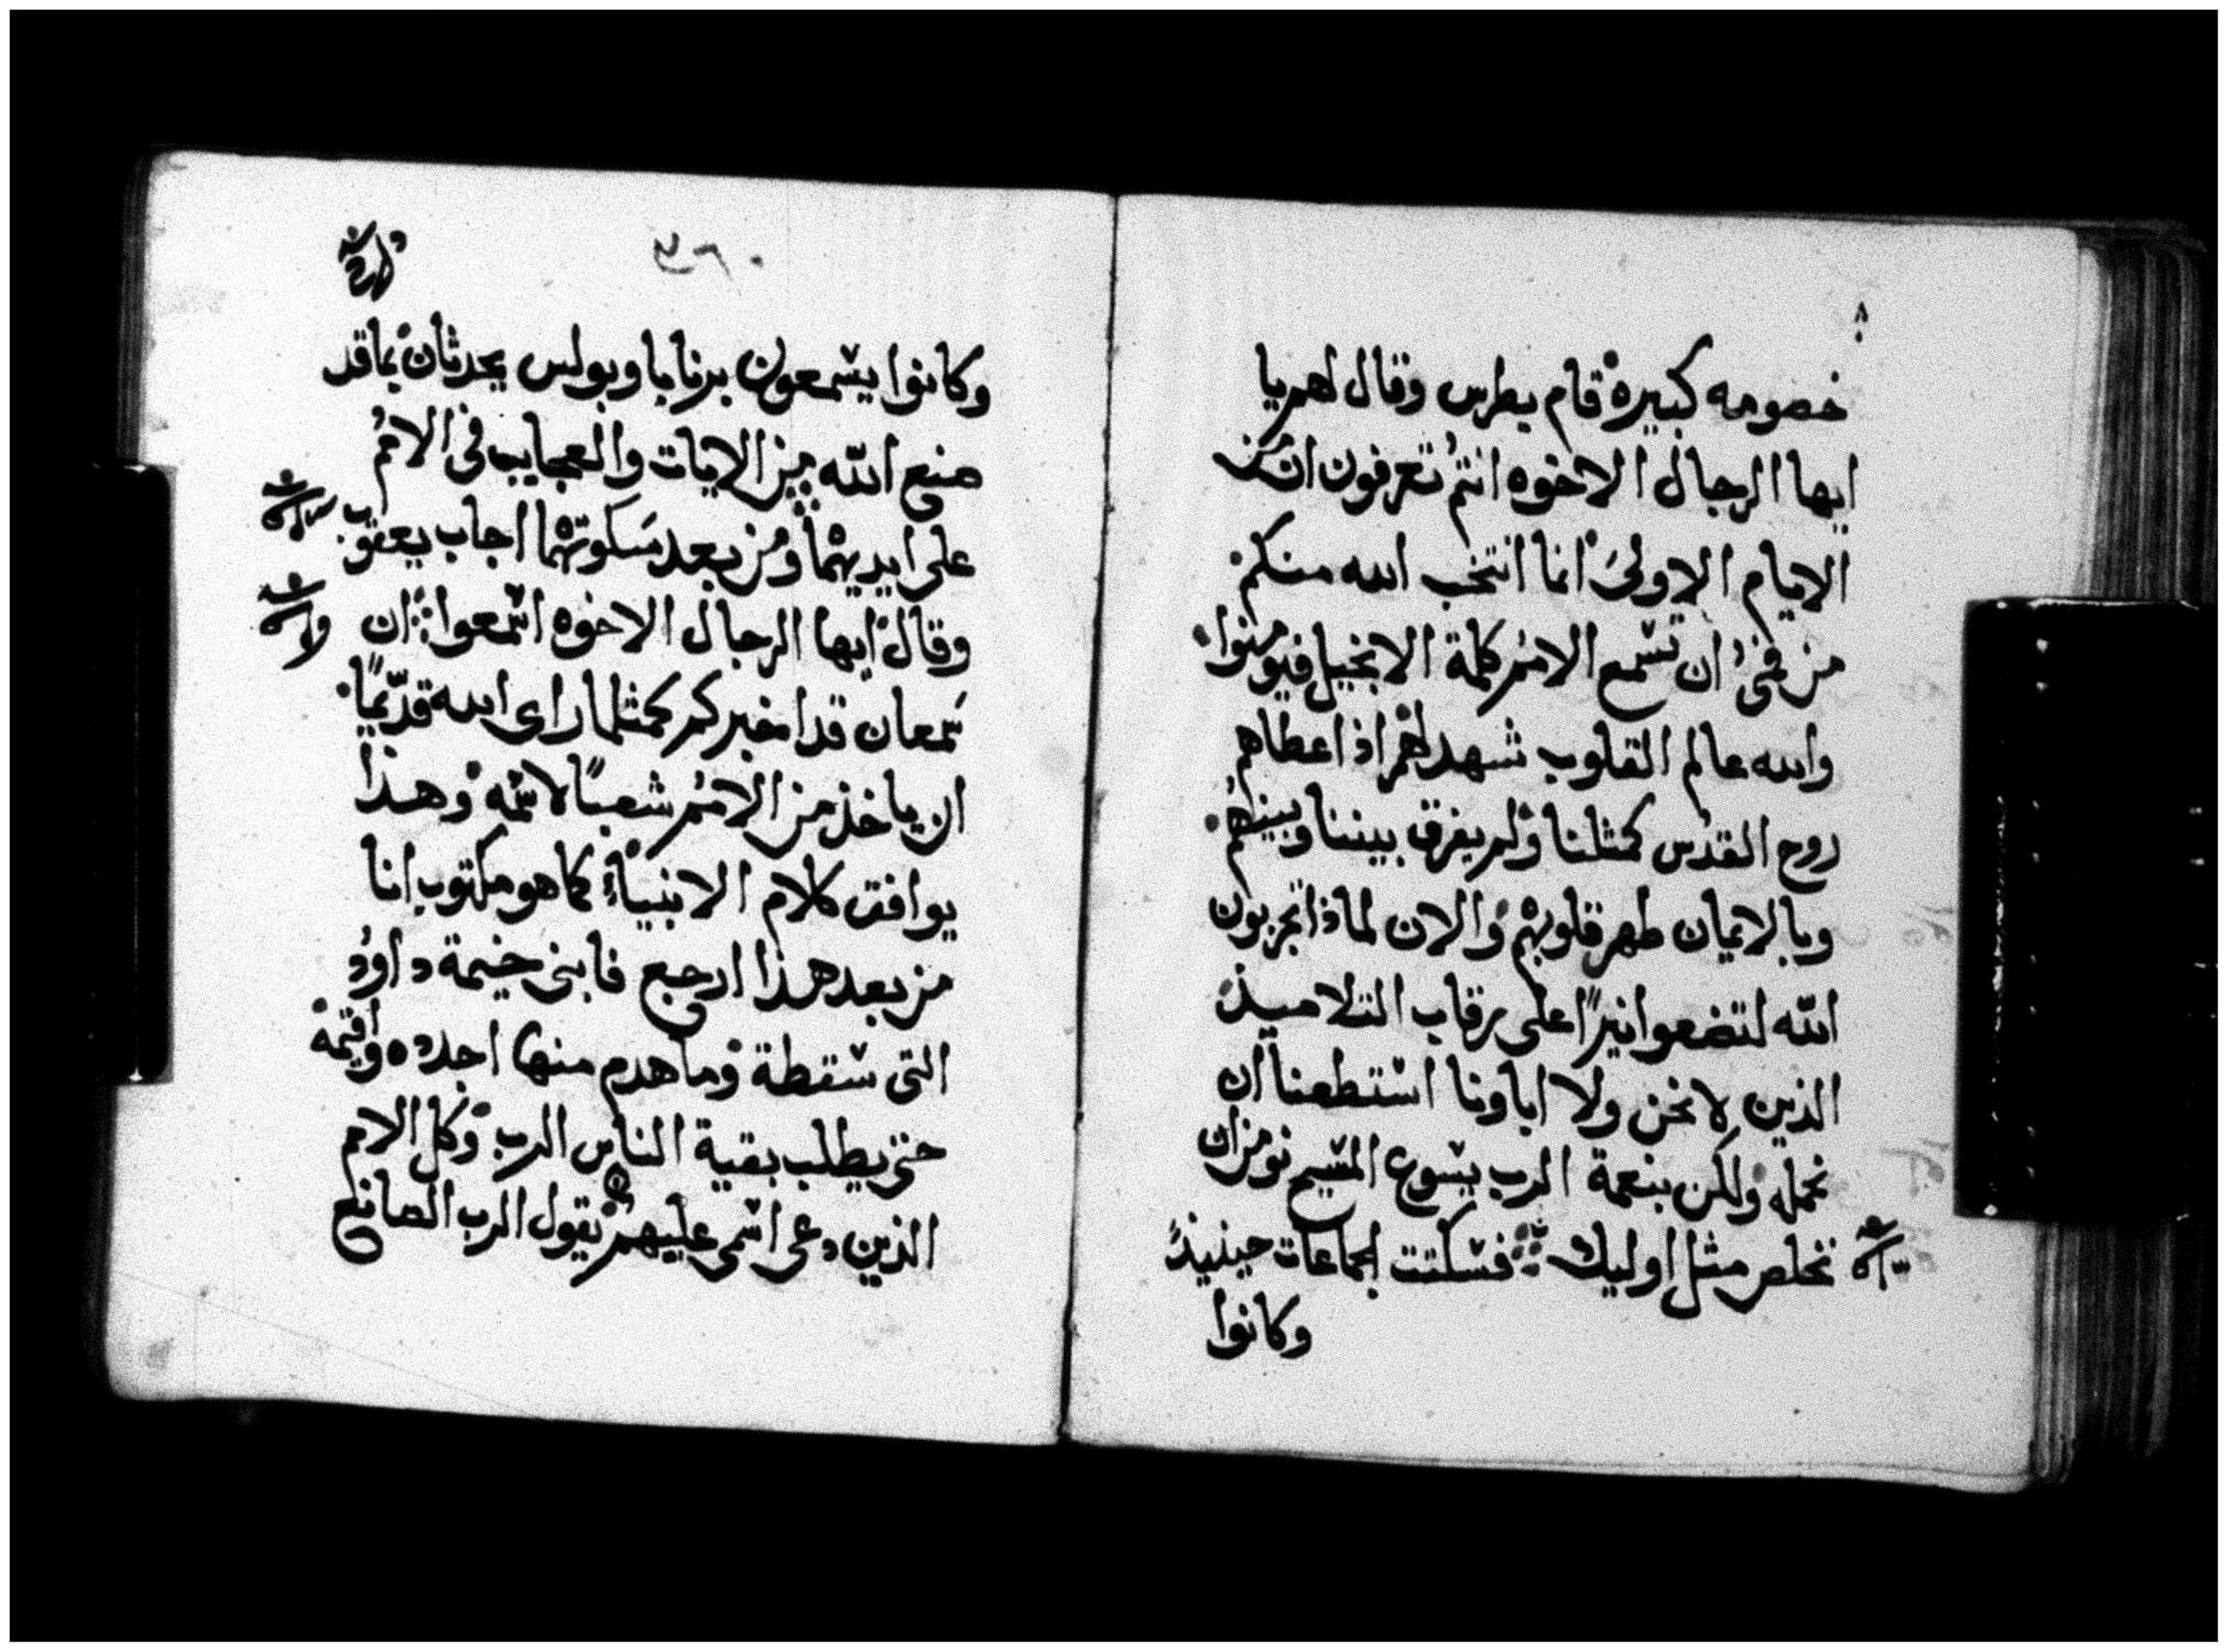 خصومه كبيرة قام بطرس وقال لهم يا
ايها الرجال الاخوه انتم تعرفون ان من
الايام الاولى انما انتخب الله منكم
من فمي ان تسمع الامم كلمة الانجيل فيومنوا
والله عالم القلوب شهد لهم اذ اعطاهم
روح القدس كمثلنا ولم يفرق بيننا وبينهم
وبالايمان طهر قلوبهم والان لماذا تجربون
الله لتضعوا نيرًا على رقاب التلاميذ
الذين لا نحن ولا اباونا استطعنا ان
نحمله ولكن بنعمة الرب يسوع المسيح نومن ان
نخلص مثل اوليك فسكتت الجماعات حينيذ
وكانوا
وكانوا يسمعون برنابا وبولس يحدثان بما قد
صنع الله من الايات والعجايب في الامم
على ايديهما ومن بعد سكوتهما اجاب يعقوب
وقال ايها الرجال الاخوه اسمعوا ان
سمعان قد اخبركم كمثلما راى الله قديمًا
ان ياخذ من الامم شعبًا لاسمه وهذا
يوافق كلام الانبياء كما هو مكتوب انا
من بعد هذا ارجع فابني خيمة داود
التى سقطة وما هدم منها اجدده واقيمه
حتى يطلب بقية الناس الرب وكل الامم
الذين دعى اسمى عليهم يقول الرب الصانع